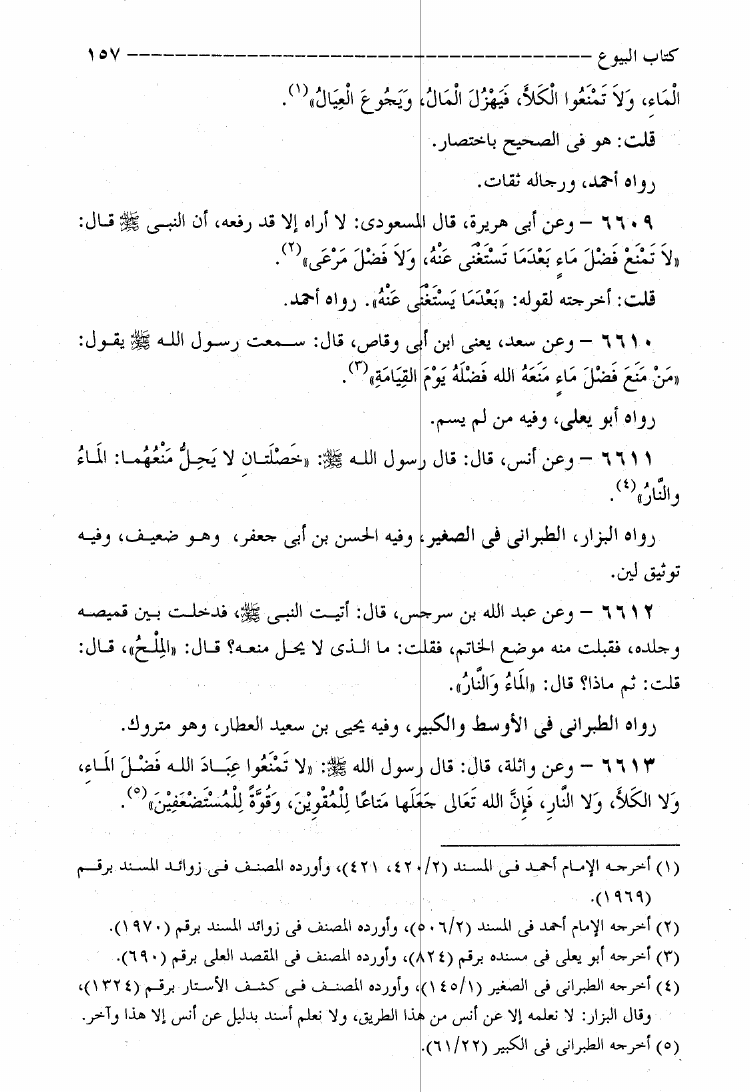 كتاب البيوع ــــــــــــــــــــــــــــــــــــــــ ١٥٧
الْمَاءِ، وَلاَ تَمْنَعُوا الْكَلأَ، فَيَهْزُلَ الْمَالُ، وَيَجُوعَ الْعِيَالُ»(١).
قلت: هو فى الصحيح باختصار.
رواه أحمد، ورجاله ثقات.
٦٦٠٩ – وعن أبى هريرة، قال المسعودى: لا أراه إلا قد رفعه، أن النبى ﷺ قال:
«لاَ تَمْنَعْ فَضْلَ مَاءٍ بَعْدَمَا تَسْتَغْنَى عَنْهُ، وَلاَ فَضْلَ مَرْعَى»(٢).
قلت: أخرجته لقوله: «بَعْدَمَا يَسْتَغْنَى عَنْهُ». رواه أحمد.
٦٦١٠ – وعن سعد، يعنى ابن أبى وقاص، قال: سمعت رسول الله ﷺ يقول:
«مَنْ مَنَعَ فَضْلَ مَاءٍ مَنَعَهُ الله فَضْلَهُ يَوْمَ القِيَامَةِ»(٣).
رواه أبو يعلى، وفيه من لم يسم.
٦٦١١ – وعن أنس، قال: قال رسول الله ﷺ: «خَصْلَتَانِ لا يَحِلُّ مَنْعُهُمَا: المَاءُ
والنَّارُ»(٤).
رواه البزار، الطبرانى فى الصغير، وفيه الحسن بن أبى جعفر، وهو ضعيف، وفيه
توثيق لين.
٦٦١٢ – وعن عبد الله بن سرجس، قال: أتيت النبى ﷺ، فدخلت بين قميصه
وجلده، فقبلت منه موضع الخاتم، فقلت: ما الذى لا يحل منعه؟ قال: «المِلْحُ»، قال:
قلت: ثم ماذا؟ قال: «المَاءُ وَالنَّارُ».
رواه الطبرانى فى الأوسط والكبير، وفيه يحيى بن سعيد العطار، وهو متروك.
٦٦١٣ – وعن واثلة، قال: قال رسول الله ﷺ: «لا تَمْنَعُوا عِبَادَ الله فَضْلَ المَاءِ،
وَلا الكَلأَ، وَلا النَّارِ، فَإِنَّ الله تَعَالى جَعَلَها مَتاعًا لِلْمُقْوِينَ، وَقُوَّةً لِلْمُسْتَضْعَفِينَ»(٥).
(١) أخرجه الإمام أحمد فى المسند (٤٢٠/٢، ٤٢١)، وأورده المصنف فى زوائد المسند برقم
(١٩٦٩).
(٢) أخرجه الإمام أحمد فى المسند (٥٠٦/٢)، وأورده المصنف فى زوائد المسند برقم (١٩٧٠).
(٣) أخرجه أبو يعلى فى مسنده برقم (٨٢٤)، وأورده المصنف فى المقصد العلى برقم (٦٩٠).
(٤) أخرجه الطبرانى فى الصغير (١٤٥/١)، وأورده المصنف فى كشف الأستار برقم (١٣٢٤)،
وقال البزار: لا نعلمه إلا عن أنس من هذا الطريق، ولا نعلم أسند بدليل عن أنس إلا هذا وآخر.
(٥) أخرجه الطبرانى فى الكبير (٦١/٢٢).